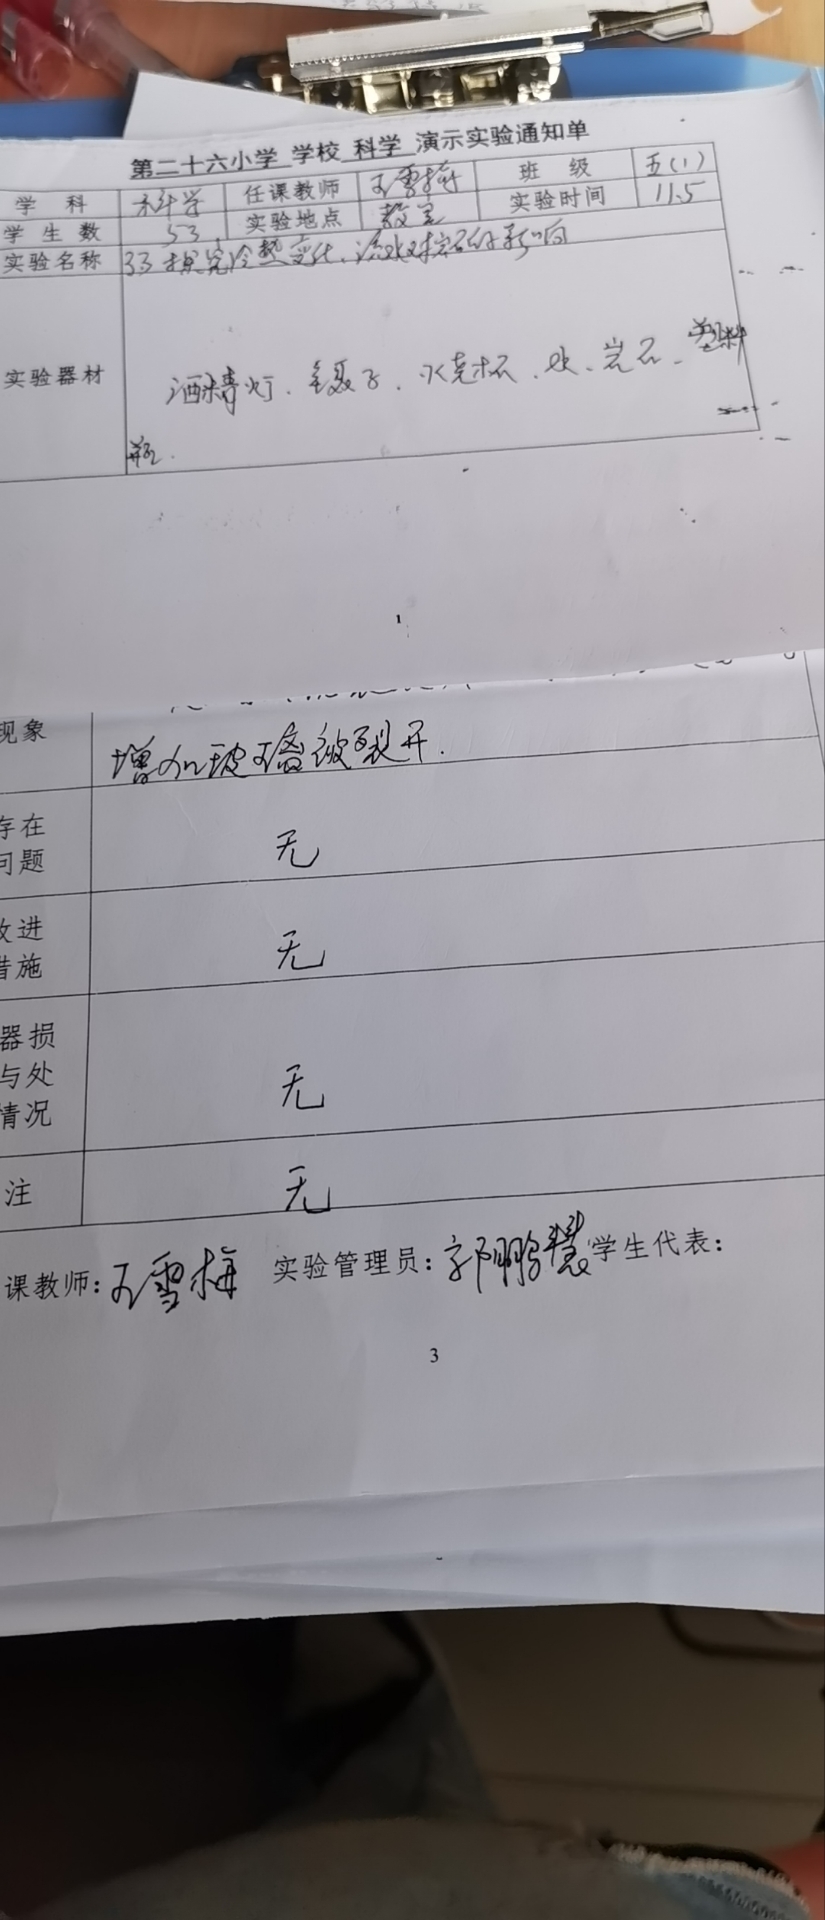 第二十六小学 学校 科学 演示实验通知单
学 科 科学 任课教师 王雪梅 班 级 五(1)
学 生 数 53 实验地点 教室 实验时间 11.5
实验名称 33探究冷热变化、流水对岩石的影响
实验器材 酒精灯、镊子、水、岩石、塑料
瓶.
1
现象 增加玻璃被裂开.
存在
问题 无
改进
措施 无
器损
与处
情况 无
注 无
课教师:王雪梅 实验管理员:郭鹏慧 学生代表:
3